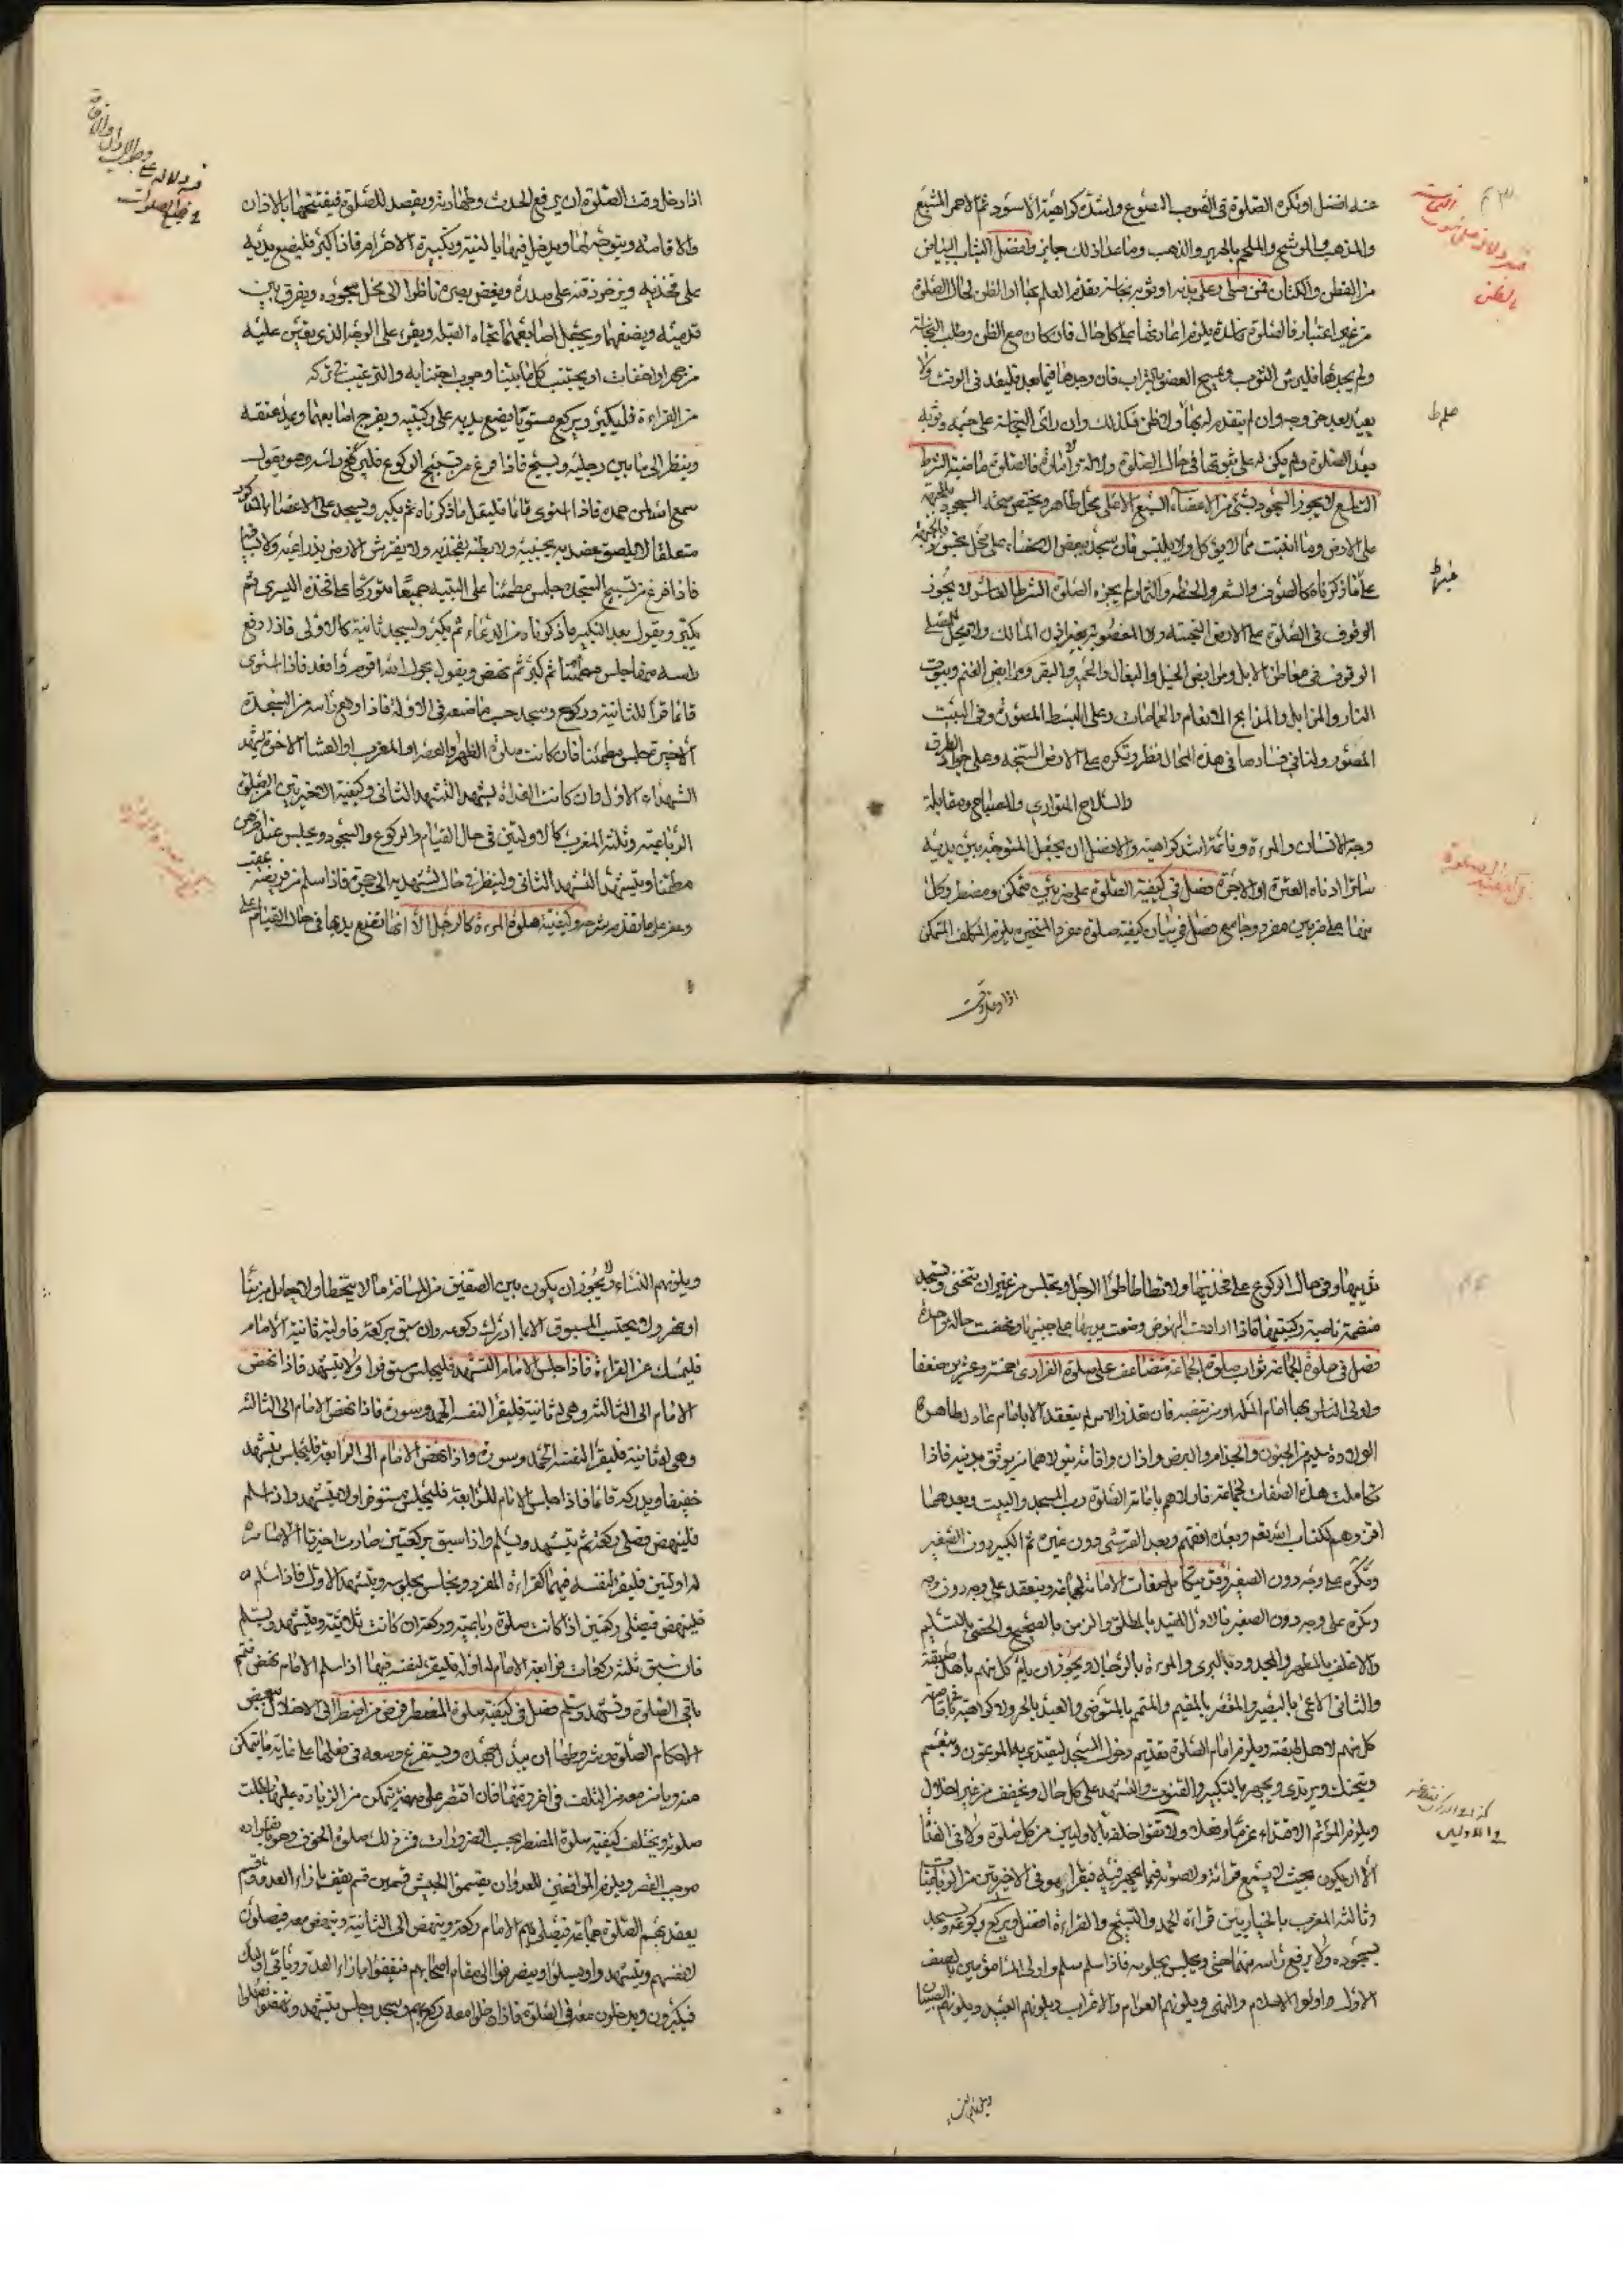 عنه افضل او تكره الصلوة فى الثوب المصبوغ واشده كراهية الاسود ثم الاحمر المشبع
والمذهب والموشح والملحم بالحرير والذهب وما عدا ذلك جايز وافضل الثياب البياض
من القطن والكتان فمن صلى وعلى بدنه او ثوبه نجاسة تقدم العلم بها او الظن لحال الصلوة
من غير اعتبار فالصلوة فاسدة يلزم اعادتها على كل حال فان كان مع الظن وطلب النجاسة
ولم يجدها فليرش الثوب ويمسح العضو بالتراب فان وجدها فيما بعد فليعد فى الوقت ولا
يعيد بعد خروجه وان لم يتقدم له بها ولا ظن فكذلك وان راى النجاسة على جسمه وثوبه
بعد الصلوة ولم يكن له على ثبوتها فى حال الصلوة دلالة ولا امارة فالصلوة ماضية الشرط
التاسع لا يجوز السجود بشئ من الاعضاء السبع الا على محل طاهر ويختص صحة السجود بالجبهة
على الارض وما انبتت مما لا يؤكل ولا يلبس فان سجد ببعض الاعضاء على محل نجس او بالجبهة
على ما ذكرناه كالصوف والشعر والحنطة والثمار لم يجزه الصلوة الشرط العاشر لا يجوز
الوقوف فى الصلوة على الارض النجسة ولا المغصوبة بغير اذن المالك ولا يحل للمصلى
الوقوف فى معاطن الابل ومرابض الخيل والبغال والحمير والبقر ومرابض الغنم وبيوت
النار والمزابل والمذابح الانعام والحمامات وعلى البسط المصورة وفى البيت
المصور ولنا فى فسادها فى هذه المحال نظر وتكره على الارض السبخة وعلى جواد الطرق
والسلاح المتوارى والمصباح ومقابلة
وجه الانسان والمرءة ونائمة اشد كراهية والافضل ان يجعل المتوجه بين يديه
ساترا ادناه العنزة او الاجرة فصل فى كيفية الصلوة على ضربين متمكن ومضطر وكل
منهما على ضربين مفرد وجامع فصل فى بيان كيفية صلوة مفرد المختص يلزم المكلف المتمكن
اذا دخل وقت
اذا دخل وقت الصلوة ان يرفع الحدث وطهارته ويقصد للصلوة فيفتتحها بالاذان
والاقامة ويتوجه لها ويدخل فيها بالنية وتكبيرة الاحرام فاذا كبر فليضع يديه
على فخذيه ويزخ ذقنه على صدره ويغض بصره ناظرا الى محل سجوده ويفرق بين
قدميه ويصفهما ويجعل اصابعهما تجاه القبلة ويقرء على الوجه الذى تعين عليه
من جهر او اخفات او يجتنب كل ما بينا وجوب اجتنابه والترغيب فى تركه
من القراءة فليكبر ويركع مستويا يضع يديه على ركبتيه ويفرج اصابعهما ويمد عنقه
وينظر الى ما بين رجليه ويسبح فاذا فرغ من تسبيح الركوع فليرفع راسه وهو يقول
سمع الله لمن حمده فاذا استوى قائما فليقل ما ذكرناه ثم يكبر ويسجد على الاعضاء المذكور
متعلقا لا يلصق عضديه بجنبيه ولا بطنه بفخذيه ولا يفترش الارض بذراعيه ولا ساقيه
فاذا فرغ من تسبيح السجدة جلس مطمئنا على اليتيه جميعا متوركا على فخذه اليسرى ثم
يكبر ويقول بعد التكبير ما ذكرناه من الدعاء ثم يكبر ويسجد ثانية كالاولى فاذا رفع
راسه منها جلس مطمئنا ثم كبر ثم نهض ويقول بحول الله اقوم واقعد فاذا استوى
قائما قرأ للثانية وركع وسجد حسب ما صنعه فى الاولة فاذا رفع راسه من السجدة
الاخيرة جلس مطمئنا فان كانت صلوة الظهر والعصر او المغرب او العشاء الاخرة تشهد
التشهد الاول وان كانت الغداة تشهد التشهد الثانى وكيفية الاخيرتين من الصلوة
الرباعية وثالثة المغرب كالاولتين فى حال القيام والركوع والسجود ويجلس عند
مطمئنا ويتشهد التشهد الثانى ولينظر فى حال تشهديه الى حجره فاذا سلم من فريضة
وعفر على ما تقدم شرحه وكيفية صلوة المرءة كالرجل الا انها تضع يديها فى حال القيام على
ثدييها وفى حال الركوع على فخذيها ولا تطاطا طؤا الرجل وتجلس من غير ان تنحنى وتسجد
منضمة ناصبة ركبتيها فاذا ارادت النهوض وضعت يديها على جنبيها ونهضت حالة واحدة
فصل فى صلوة الجماعة ثواب صلوة الجماعة متضاعف على صلوة الفرادى خمسة وعشرين ضعفا
واولى الناس بها امام الملة او من ينصبه فان تعذر الامران لم ينعقد الا بامام عادل طاهر
الولادة سليم من الجنون والجذام والبرص واذان واقامة يتولاهما من يوثق بدينه فاذا
تكاملت هذه الصفات لجماعة فاولاهم بامامة الصلوة رب المسجد والبيت وبعدهما
اقرؤهم لكتاب الله تعم وبعده افقههم وبعد القرشى دون غيره ثم الكبير دون الصغير
وتكره على وجه دون الصغير
وتكره على وجه دون الصغير فالاول العبيد بالمطلق والزمن بالصحيح والخصى بالسليم
والاغلف بالمطهر والمحدود بالبرى والمرءة بالرجال ويجوز ان يأم كل منهم باهل طبقته
والثانى الاعمى بالبصير والمقصر بالمقيم والمتيمم بالمتوضى والعبد بالحر ولا كراهية فى امامة
كل منهم لاهل طبقته ويلزم امام الصلوة تقديم دخول المسجد ليقتدى به المؤتمون ويتعمم
ويتحنك ويرتدى ويجهر بالتكبير والقنوت والتشهد على كل حال ويخفف من غير اخلال
ويلزم المؤتم الاقتداء عزما وفعلا ولا يقرء خلفه فى الاوليين من كل صلوة ولا فى الغداة
الا ان يكون بحيث لا يسمع قراءته ولا صوته فيما يجهر فيه فيقراء وهو فى الاخيرتين من الرباعيات
وثالثة المغرب بالخيار بين قراءة الحمد والتسبيح والقراءة افضل ويركع بركوعه ويسجد
بسجوده ولا يرفع راسه منهما حتى ويجلس بجلوسه فاذا سلم سلم واولى المأمومين بالصف
الاول واولوا الاحلام والنهى ويلونهم العوام والاعراب ويلونهم العبيد ويلونهم الصبيان
ويلونهم النساء
ويلونهم النساء ولا يجوز ان يكون بين الصفين من المسافة ما لا يتخطا ولا حايل من بناء
او نهر ولا يحتسب المسبوق الا بما ادرك ركوعه وان سبق بركعة فاولته ثانية الامام
فليمسك عن القراءة فاذا جلس الامام للتشهد فليجلس مستوفزا ولا يتشهد فاذا نهض
الامام الى الثالثة وهى له ثانية فليقرأ لنفسه الحمد وسورة فاذا نهض الامام الى الثالثة
وهى له ثانية فليقرأ لنفسه الحمد وسورة واذا نهض الامام الى الرابعة فليجلس يتشهد
خفيفا ويدركه قائما فاذا جلس الامام للرابعة فليجلس مستوفزا ولا يتشهد واذا سلم
فلينهض فصلى ركعة ثم يتشهد ويسلم واذا سبق بركعتين صارت اخيرتا الامام
له اوليتين فليقرأ لنفسه فيهما كقراءة المفرد ويجلس بجلوسه ويتشهد الاول فاذا سلم
فلينهض فيصلى ركعتين اذا كانت صلوة رباعية وركعة ان كانت ثلاثية ويتشهد ويسلم
فان سبق بثلاث ركعات فرابعة الامام له اولة فليقرأ لنفسه فيها اذا سلم الامام نهض فتمم
باقى الصلوة وتشهد وسلم فصل فى كيفية صلوة المضطر فرض من اضطر الى الاخلال ببعض
احكام الصلوة وشروطها ان يبذل جهده ويستفرغ وسعه فى فعلها على غاية ما يتمكن
منه ويامن معه من التلف فان اقتصر على متمكن من الزيادة عليها بطلت
صلوته ويختلف كيفية صلوة المضطر بحسب الضرورات فمن ذلك صلوة الخوف وهو بانفراده
موجب القصر ويلزم المواقفين للعدو ان يقسموا الجيش قسمين قسم يقف بازاء العدو وقسم
يعقد بهم الصلوة جماعة فيصلى بهم الامام ركعة وينهض الى الثانية وينهض معه فيصلون
لانفسهم ويتشهدوا ويسلموا وينصرفوا الى مقام اصحابهم فيقفوا بازاء العدو وياتى اولئك
فيكبرون ويدخلون معه فى الصلوة فاذا دخلوا معه ركع بهم وسجد وجلس يتشهد ونهضوا فصلوا